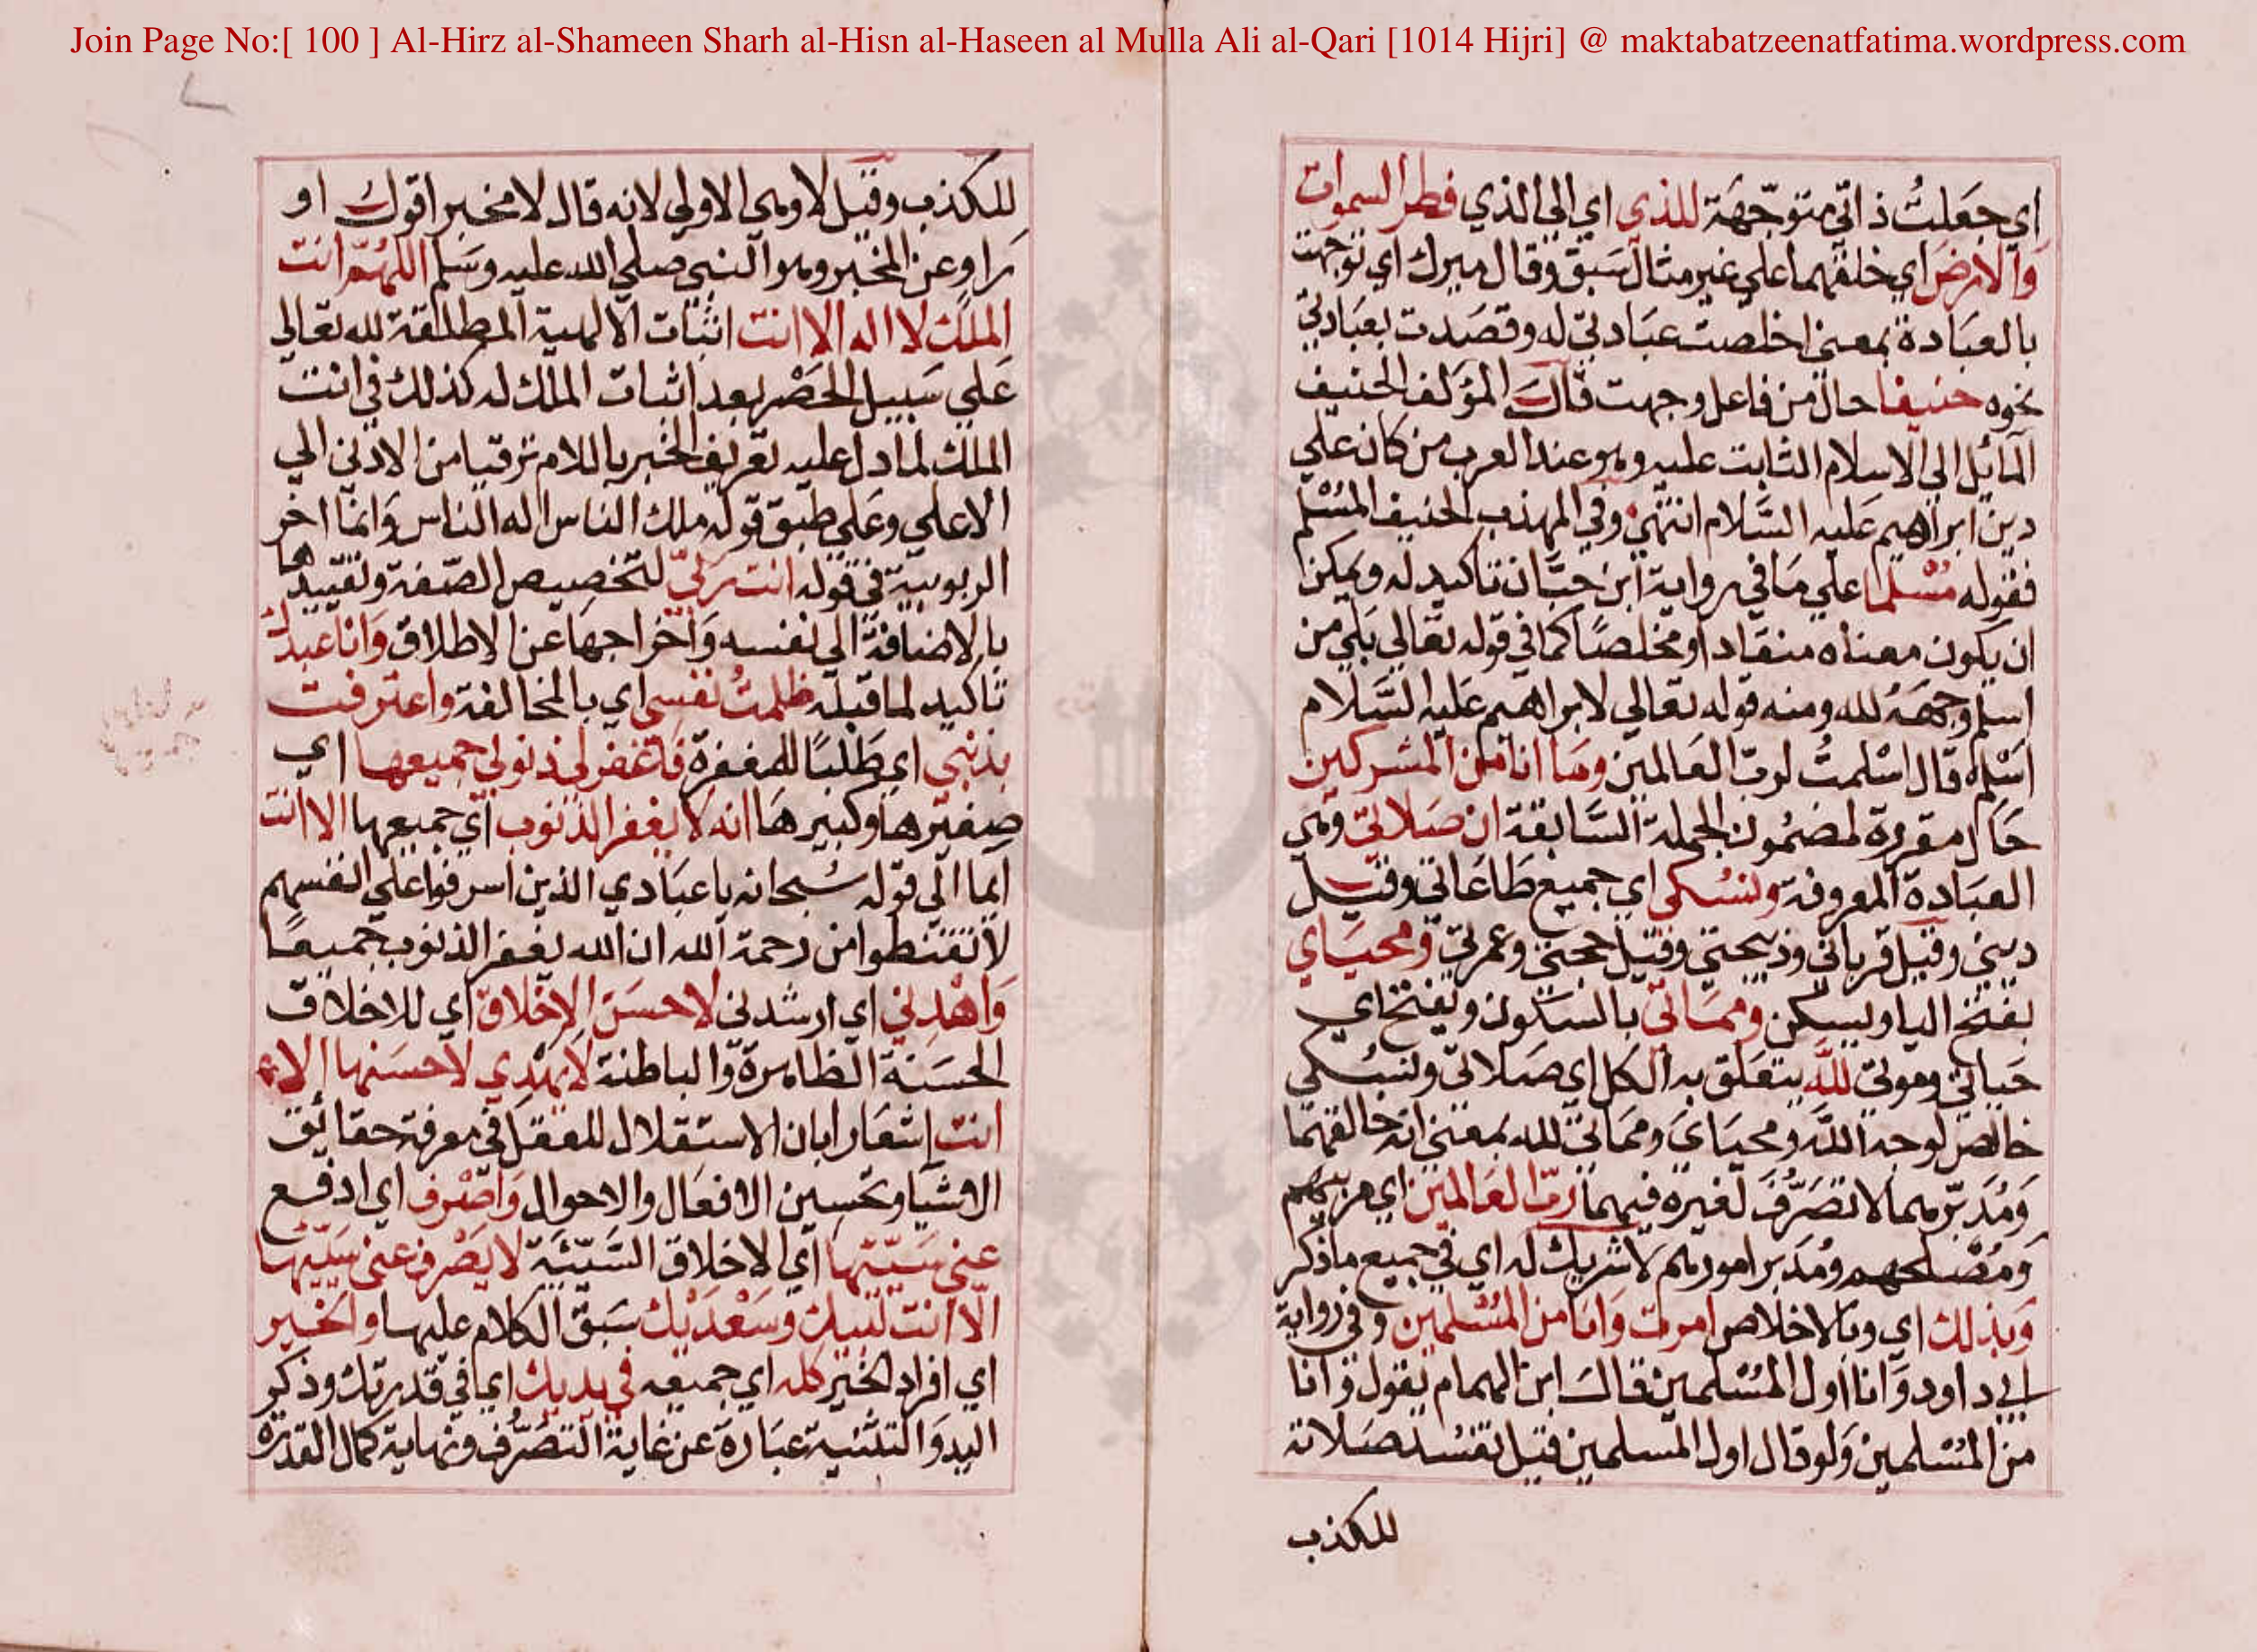 Join Page No:[ 100 ] Al-Hirz al-Shameen Sharh al-Hisn al-Haseen al Mulla Ali al-Qari [1014 Hijri] @ maktabatzeenatfatima.wordpress.com
اي جَعَلتُ ذاتي متوجّهَة للذي اي الى الذي فطر السموات
وَالارضَ اي خلقهما علي غير مثال سَبق وقال ميرك اي توجهت
بالعبَادة بمعنى اخلصت عبَادتي له وقصَدت بعبَادتي
نحوه حنيفا حال من فاعل وجهت قال المؤلف الحنيف
المائل الي الاسلام الثابت عليه وهو عند العرب من كان علي
دين ابراهيم عَليه السَّلام انتهى وفي المهذب الحنيف المُسْلم
فقوله مُسْلما علي مَا في رواية ابن حبَّان تاكيد له ويمكن
ان يكون معناه منقادا او مخلصًا كما في قوله تعالي بَلي من
اسلم وجهَهُ لله ومنه قوله تعالي لابراهيم عَليه السَّلام
اسْلم قال اسْلمتُ لرب العَالمين ومَا انا من المشركين
حَال مقررة لمضمُون الجملة السَّابقة ان صَلاتي وهي
العبَادة المعروفة ونسُكي اي جميع طَاعَاتي وقيل
ديني وقيل قرباني وذبيحتي وقيل حجتي وعمرتي ومحيَاي
بفتح اليا ويسكن وممَاتي بالسكون ويفتح اي
حَياتي وموتي للَّه يتعَلق به الكل اي صَلاتي ونسُكي
خالص لوجه اللَّه ومحيَايَ وممَاتي لله بمعنى انه خالقهما
وَمُدَبّرهما لا تصَرُّفَ لغيره فيهما ربّ العَالمين اي مربيهم
وَمُصْلحهم ومُدَبر امورهم لا شريك له اي في جميع ما ذكر
وَبذلك اي وبالاخلاص امرت وَانا من المُسْلمين وفي رواية
ابي داود وَانا اول المُسْلمين قال ابن الهمام يقول وَانا
من المُسْلمين وَلو قال اول المسلمين قيل تفسُد صَلاته
للكذب
للكذب وقيل لا وهي الاولي لانه قال لا مخبرا قوك او
رَاو عن المخبر وهو النبي صلي الله عليه وسَلم اللهُمّ انت
الملك لا اله الا انت اثبَات الالهية المطلقة لله تعالي
عَلي سَبيل الحَصْر بعد اثبات الملك له كذلك في انت
الملك لما دل عليه تعريف الخبر باللام ترقيا من الادنى الي
الاعلي وعَلي طبق قوله ملك الناس اله الناس وَانما اخر
الربوبية في قوله انت ربّي لتخصيص الصّفة وتقييدها
بالاضافة الي نفسه وَاخراجهَا عن الاطلاق وَانا عبدكَ
تاكيد لما قبله ظلمتُ نفسي اي بالمخالفة واعترفت
بذنبي اي طَلبًا للمغفرة فاغفر لي ذنوبي جميعها اي
صغيرها وكبيرهَا انه لا يغفر الذنوب اي جميعها الا انت
ايما الي قوله سُبحانه يا عبَادي الذين اسرفوا علي انفسهم
لا تقنطوا من رحمة الله ان الله يغفر الذنوب جميعًا
وَاهْدِني اي ارشدني لاحسَن الاخلاق اي للاخلاق
الحسَنة الظاهرة والباطنة لا يهْدِي لاحسَنها الا
انت إشعَارا بان لا استقلال للعقل في معرفة حقايق
الاشيَا وتحسين الافعَال والاحوال وَاصْرف اي ادفع
عني سَيّئها اي الاخلاق السَّيّئَية لا يَصْرف عني سَيّئها
الّا انت لبّيك وسَعْدَيْك سَبق الكلام عليهما والخير
اي افراد الخير كله اي جميعه في يديك ايما في قدرتك وذكر
اليد وَالتثنية عبَارة عن غاية التصَرُّف ونهاية كمال القدرة